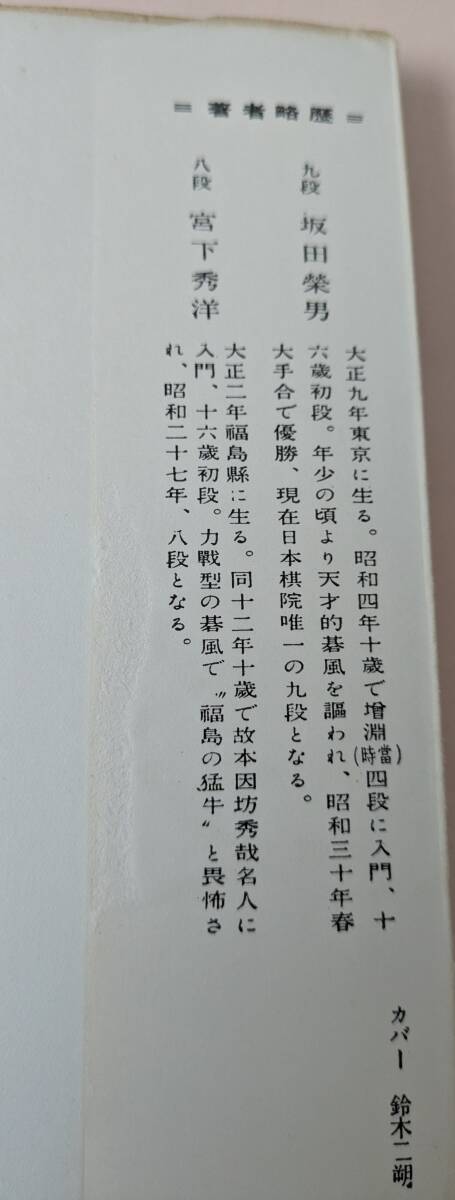 ＝著者略歴＝
九段 坂田榮男
大正九年東京に生る。昭和四年十歳で増淵(當時)四段に入門、十
六歳初段。年少の頃より天才的碁風を謳われ、昭和三十年春
大手合で優勝、現在日本棋院唯一の九段となる。
八段 宮下秀洋
大正二年福島縣に生る。同十二年十歳で故本因坊秀哉名人に
入門、十六歳初段。力戰型の碁風で〝福島の猛牛〟と畏怖さ
れ、昭和二十七年、八段となる。
カバー 鈴木二朔